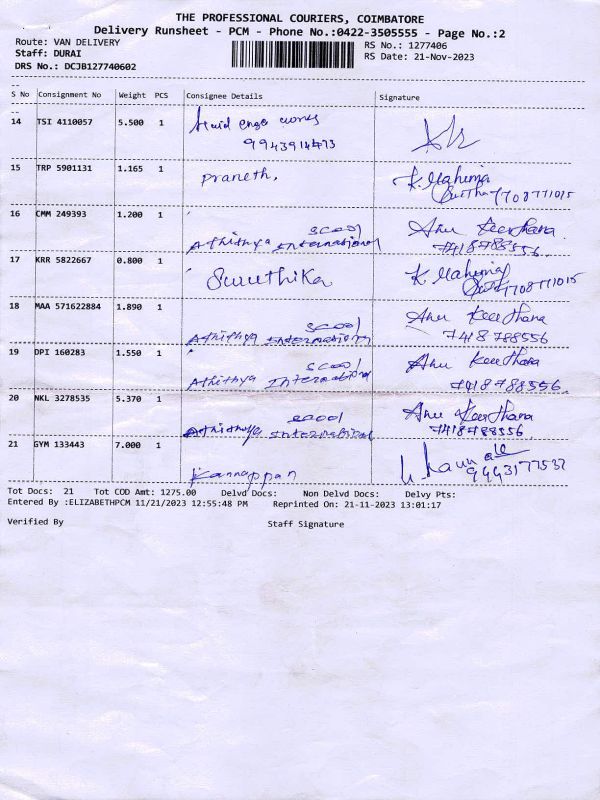 THE PROFESSIONAL COURIERS, COIMBATORE
Delivery Runsheet - PCM - Phone No.:0422-3505555 - Page No.:2
Route: VAN DELIVERY RS No.: 1277406
Staff: DURAI RS Date: 21-Nov-2023
DRS No.: DCJB127740602
S No Consignment No Weight PCS Consignee Details Signature
14 TSI 4110057 5.500 1
9943914473
15 TRP 5901131 1.165 1 Praneth, K. Mahima
7708771015
16 CMM 249393 1.200 1 Athithya International scool Anu Keerthana
7418788556
17 KRR 5822667 0.800 1 Swruthika K. Mahima
7708771015
18 MAA 571622884 1.890 1 Athithya International scool Anu Keerthana
7418788556
19 DPI 160283 1.550 1 Athithya International scool Anu Keerthana
7418788556
20 NKL 3278535 5.370 1 Athithya International scool Anu Keerthana
7418788556
21 GYM 133443 7.000 1 Kannappan
9443177532
Tot Docs: 21 Tot COD Amt: 1275.00 Delvd Docs: Non Delvd Docs: Delvy Pts:
Entered By :ELIZABETHPCM 11/21/2023 12:55:48 PM Reprinted On: 21-11-2023 13:01:17
Verified By Staff Signature